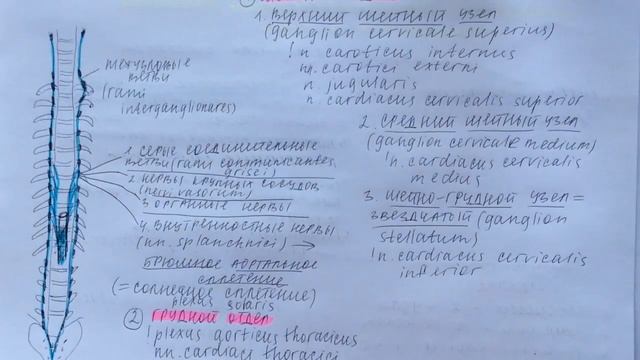 1. ВЕРХНИЙ ШЕЙНЫЙ УЗЕЛ
(ganglion cervicale superius)
! n caroticus internus
nn. carotici externi
n. jugularis
n. cardiacus cervicalis superior
2. СРЕДНИЙ ШЕЙНЫЙ УЗЕЛ
(ganglion cervicale medium)
! n. cardiacus cervicalis
medius
3. ШЕЙНО-ГРУДНОЙ УЗЕЛ =
ЗВЕЗДЧАТЫЙ (ganglion
stellatum)
! n. cardiacus cervicalis
inferior
межузловые
ветви
(rami
interganglionares)
1. серые соединительные
ветви (rami communicantes
grisei)
2. НЕРВЫ КРУПНЫХ СОСУДОВ
(nervi vasorum)
3. ОРГАННЫЕ НЕРВЫ
4. ВНУТРЕННОСТНЫЕ НЕРВЫ
(nn. splanchnici) →
БРЮШНОЕ АОРТАЛЬНОЕ
СПЛЕТЕНИЕ
(= солнечное сплетение)
plexus solaris
2 ГРУДНОЙ ОТДЕЛ
! plexus aorticus thoracicus
nn. cardiaci thoracici